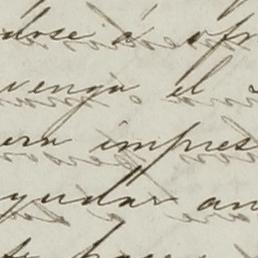 dose á ofr
venga el
era impres
yudar an